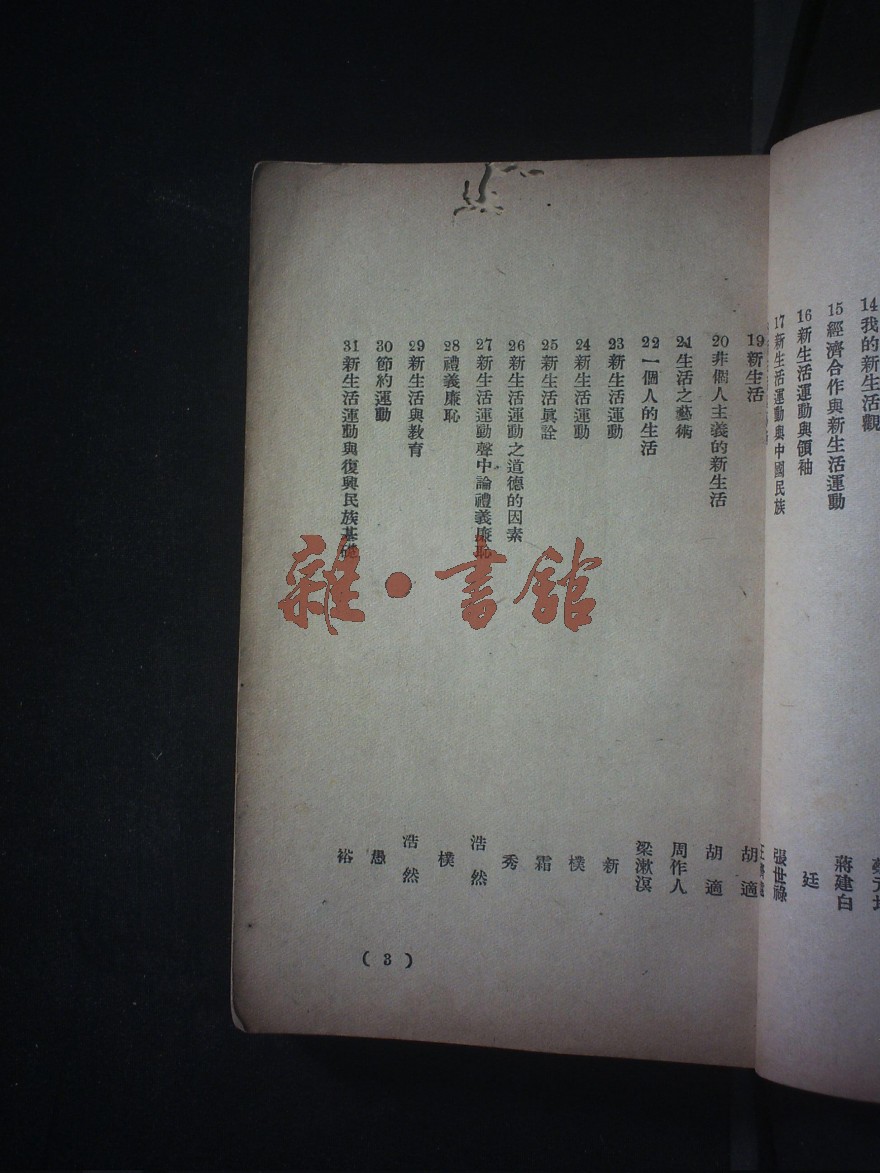 14 我的新生活觀
15 經濟合作與新生活運動 蔣建白
16 新生活運動與領袖 廷
17 新生活運動與中國民族 張世祿
19 新生活 胡適
20 非個人主義的新生活 胡適
21 生活之藝術 周作人
22 一個人的生活 梁漱溟
23 新生活運動 新
24 新生活運動 樸
25 新生活眞詮 霜
26 新生活運動之道德的因素 秀
27 新生活運動聲中論禮義廉恥 浩然
28 禮義廉恥 樸
29 新生活與教育 浩然
30 節約運動 愚
31 新生活運動與復興民族基礎 裕
( 3 )
雜·書館